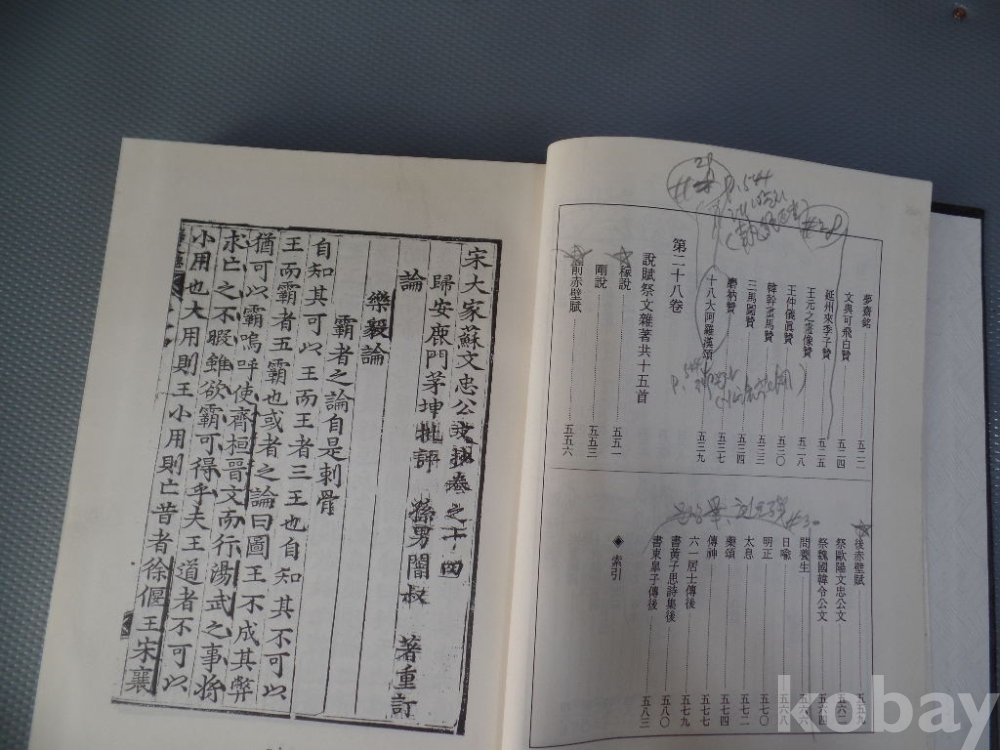 宋大家蘇文忠公文抄卷之十四
歸安鹿門茅坤批評 孫男闇叔 著重訂
論
樂毅論
霸者之論自是刺骨
自知其可以王而王者三王也自知其不可以
王而霸者五霸也或者之論曰圖王不成其弊
猶可以霸嗚呼使齊桓晉文而行湯武之事將
求亡之不暇雖欲霸可得乎夫王道者不可以
小用也大用則王小用則亡昔者徐偃王宋襄
#2
p.544
夢齋銘 五二二
文與可飛白贊 五二四
延州來季子贊 五二五
王元之畫像贊
王仲儀眞贊 五二八
韓幹畫馬贊 五三〇
三馬圖贊 五三三
磨衲贊 五三四
十八大阿羅漢頌 五三七
五三九
第二十八卷
說賦祭文雜著共十五首
稼說 五五一
剛說 五五三
前赤壁賦 五五六
後赤壁賦 五五九
祭歐陽文忠公文 五六二
祭魏國韓令公文 五六四
問養生 五六六
日喻 五六八
明正 五七〇
太息 五七二
藥頌 五七五
傳神 五七七
六一居士傳後 五七九
書黃子思詩集後 五八〇
書東皐子傳後 五八三
◈ 索引
kobay